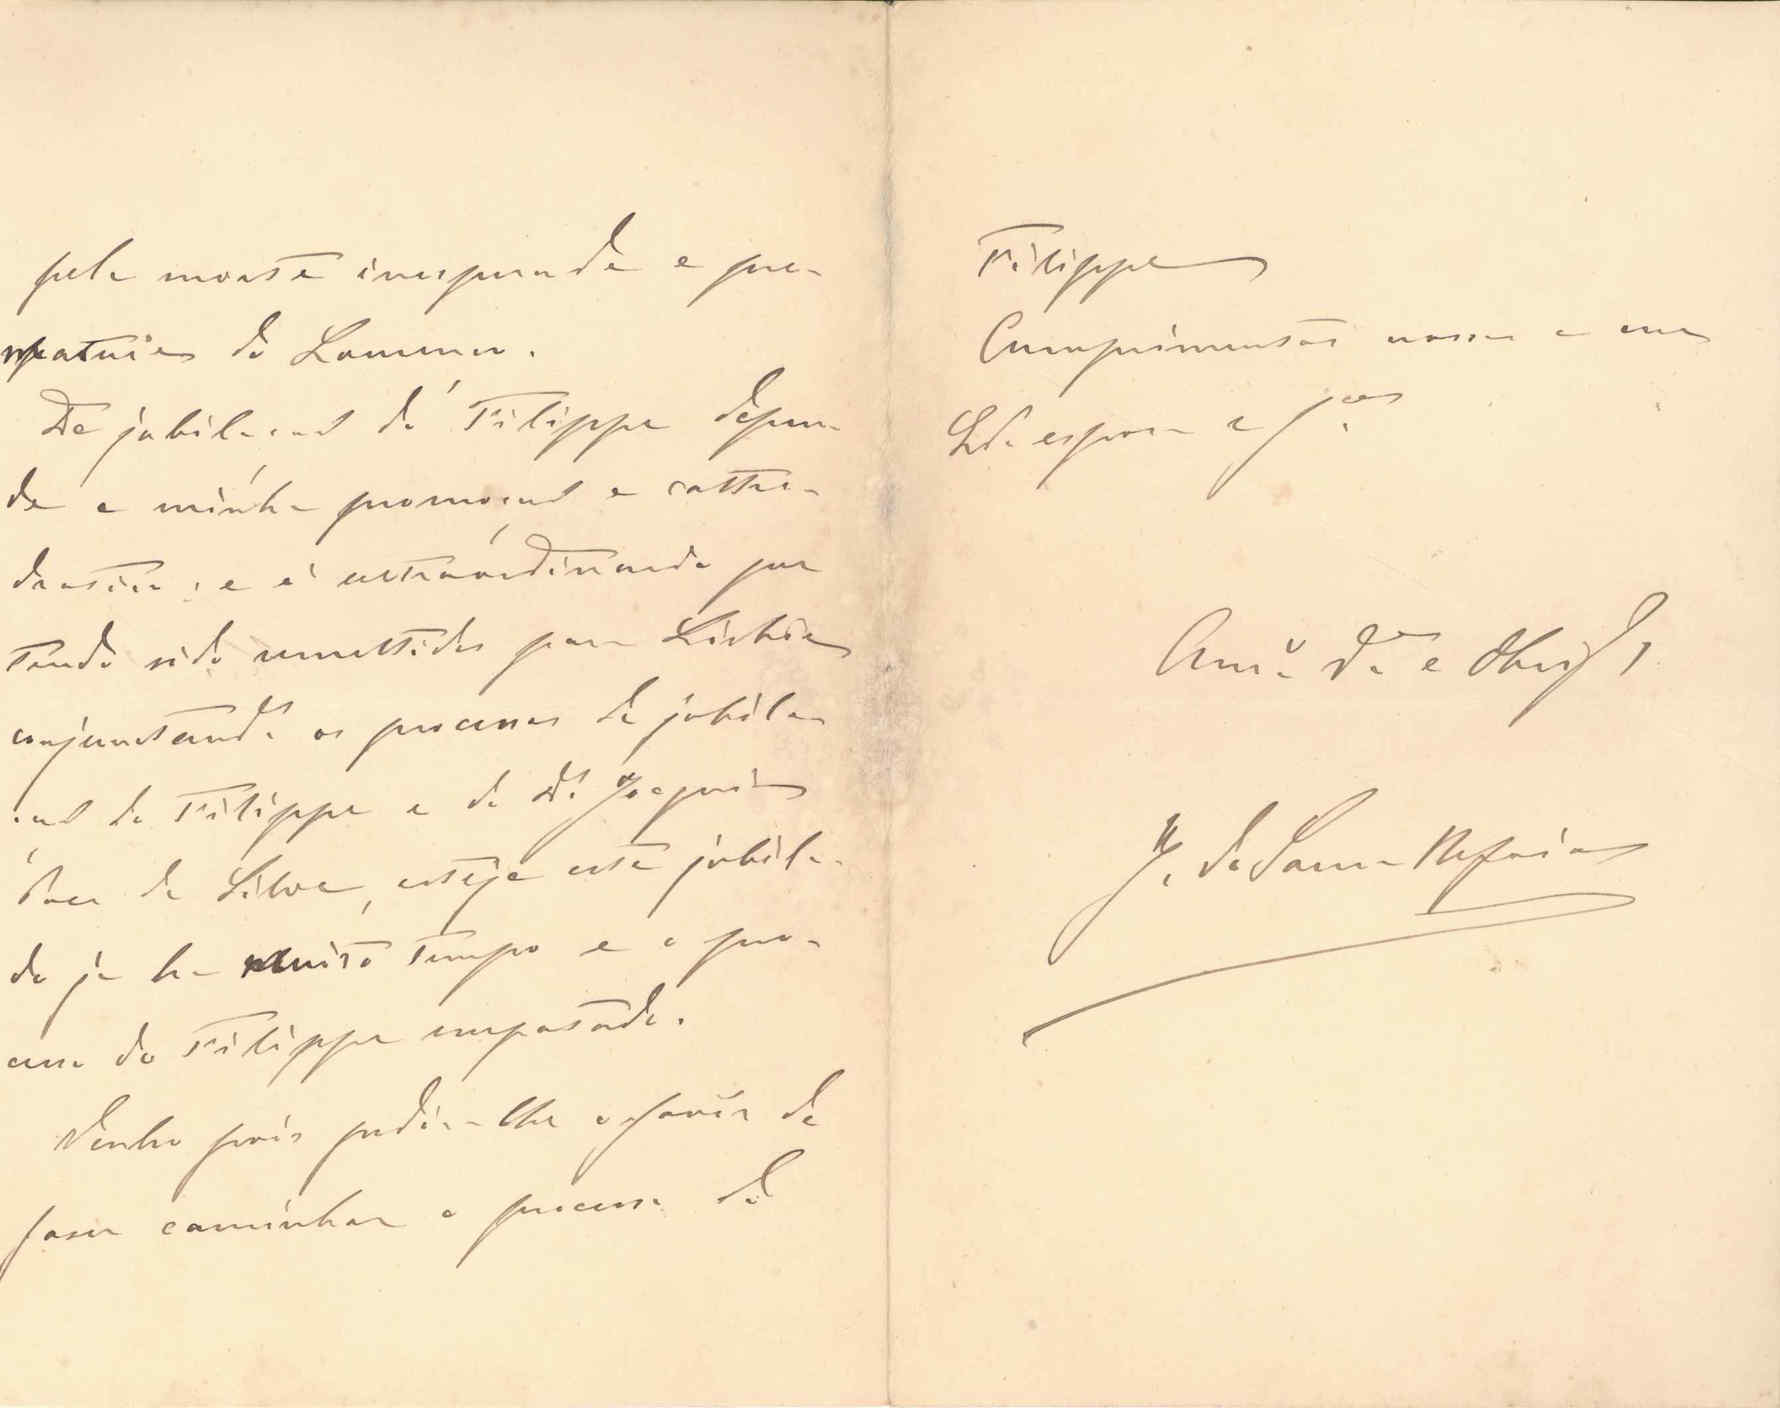 pela morte inesperada e pre-
matura do Lourenço.
Da jubilação do Filippe depen-
de a minha promoção a cathe-
dratico, e é extraordinario que
tendo sido remettidos para Lisboa
conjunctamente os processos de jubila-
ção do Filippe e do Dr. Joaquim
da Silva, esteja este jubila-
do ja ha muito tempo e o pro-
cesso do Filippe empatado.
Venho pois pedir-lhe o favor de
fazer caminhar o processo do
Filippe
Cumprimentos nossos a sua
esposa e
Amo. Do. e Obrigdo.
J. de Sousa Refoios